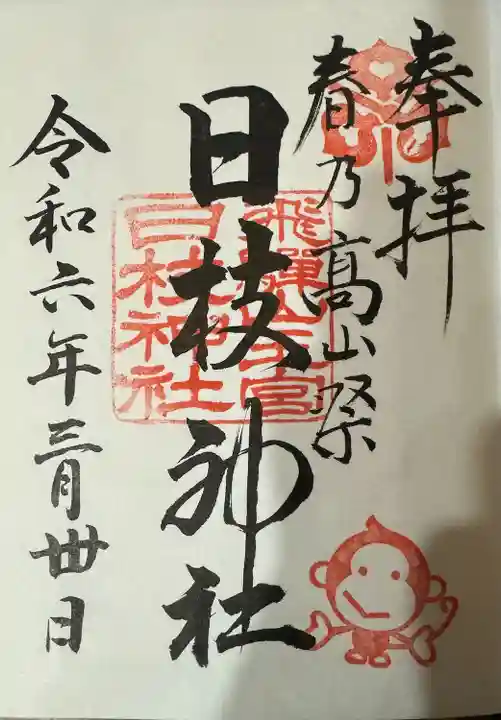 奉拝
春乃高山祭
飛驒山王宮
日枝神社
日枝神社
令和六年三月丗日